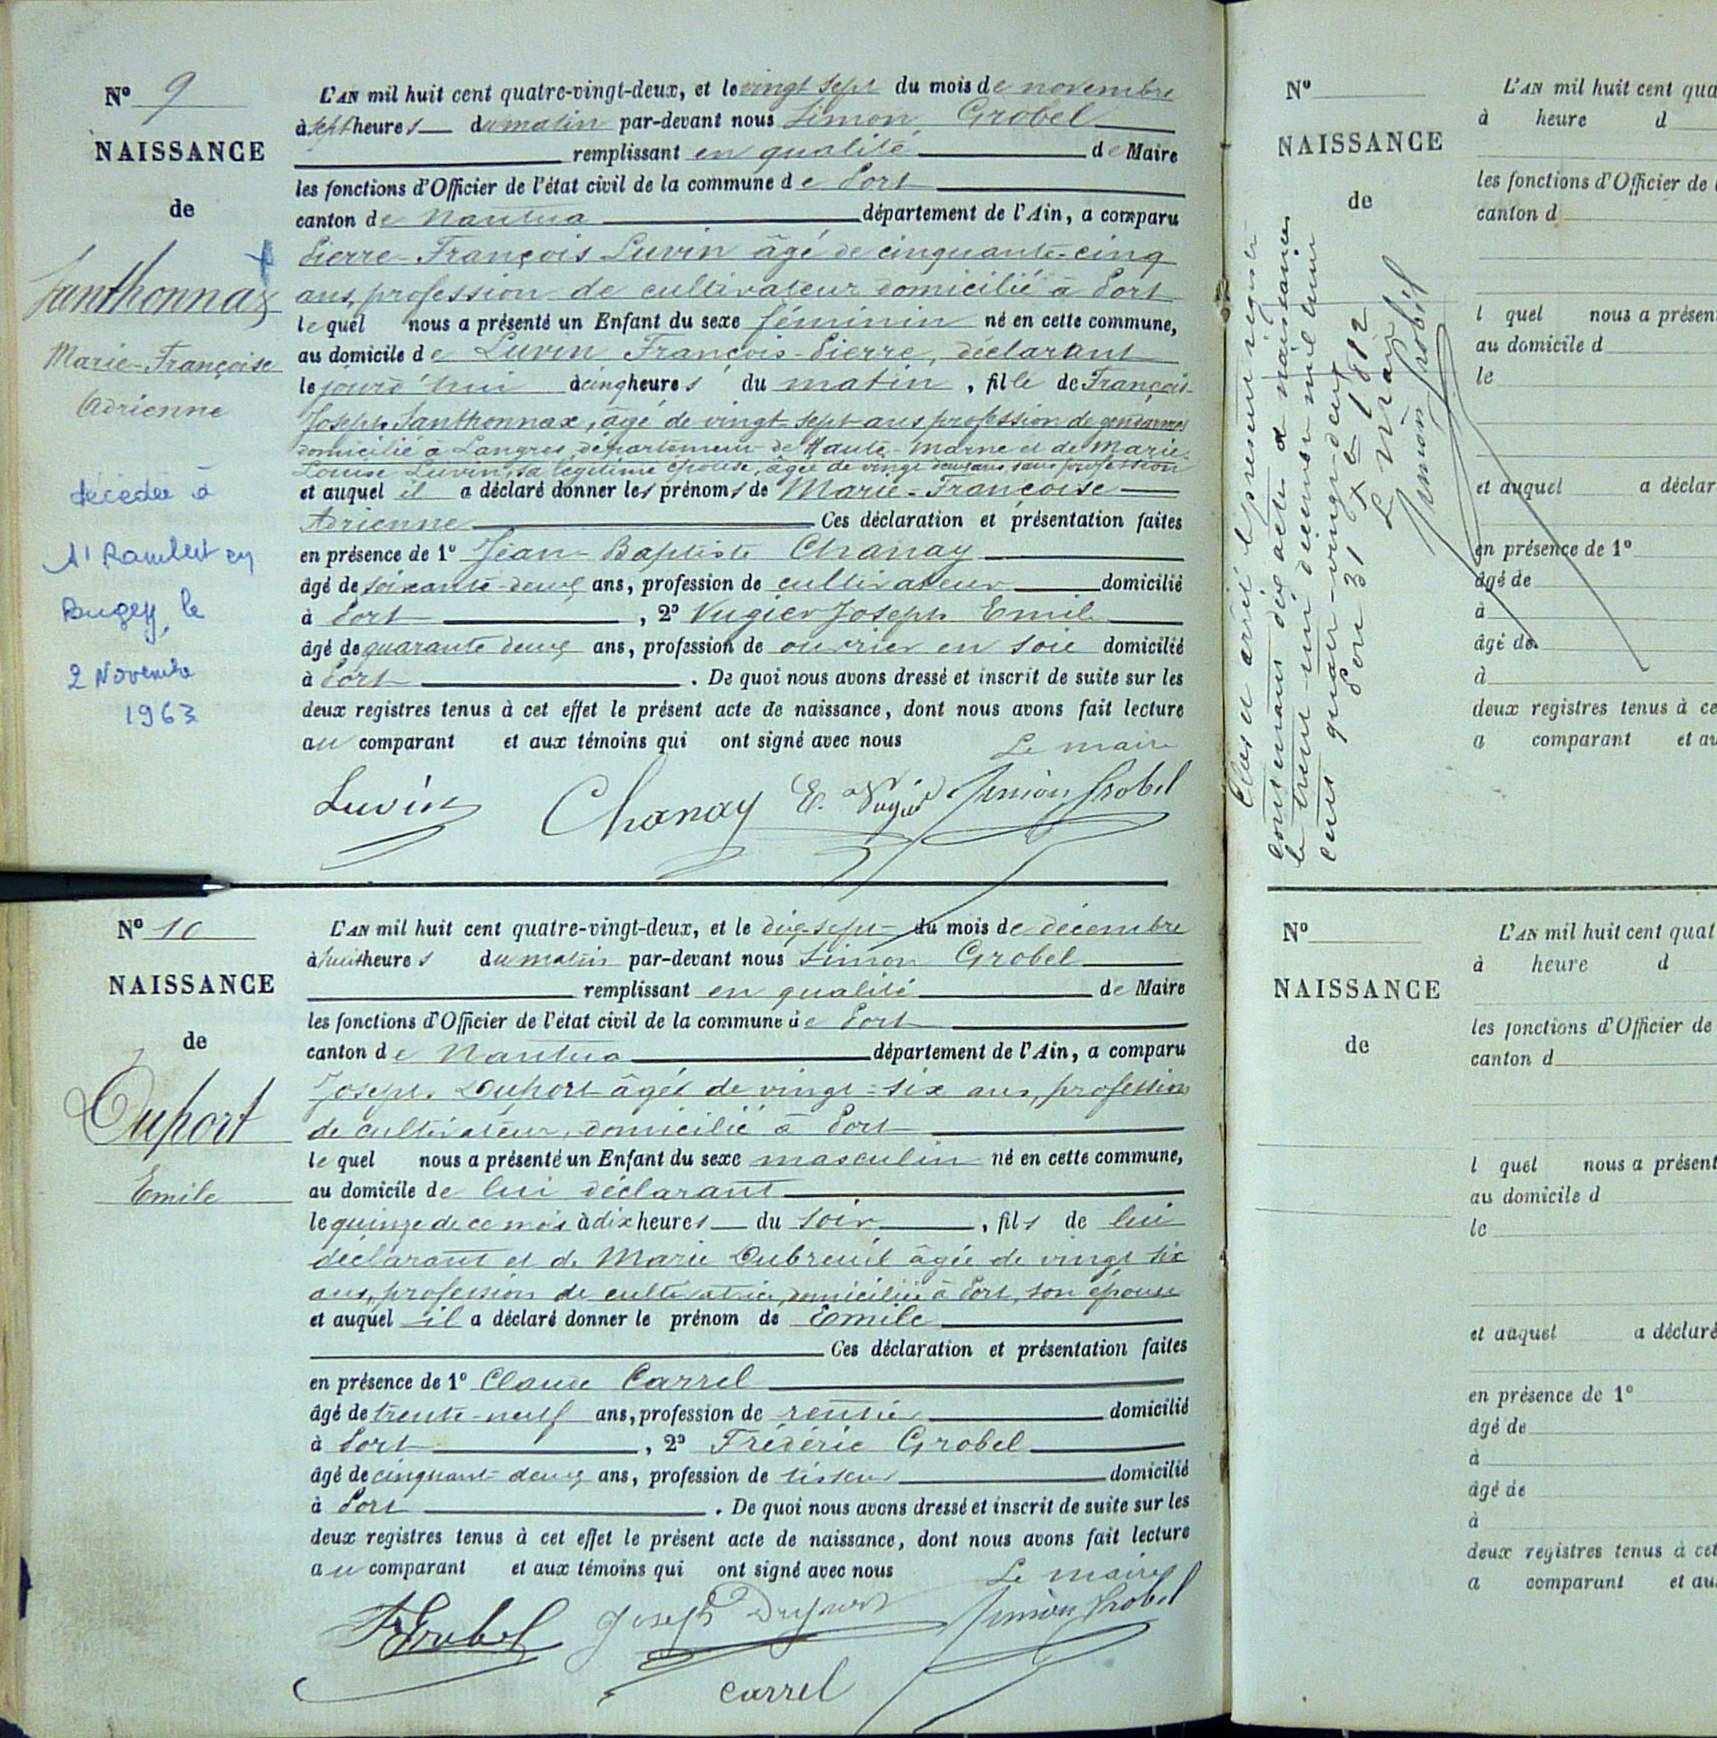 N° 9
NAISSANCE
de
Santhonnax
Marie-Françoise
Adrienne
décédée à
St Rambert en
Bugey, le
2 Novembre
1963
L'AN mil huit cent quatre-vingt-deux, et le vingt sept du mois de novembre
à sept heures du matin par-devant nous Simon Grobel
remplissant en qualité de Maire
les fonctions d'Officier de l'état civil de la commune de Port
canton de Nantua département de l'Ain, a comparu
Pierre-François Luvin âgé de cinquante-cinq
ans, profession de cultivateur domicilié à Port
le quel nous a présenté un Enfant du sexe féminin né en cette commune,
au domicile de Luvin François-Pierre, déclarant
le jourd'hui à cinq heures du matin, fille de François
Joseph Santhonnax, âgé de vingt-sept ans, profession de gendarme
domicilié à Langres, département de Haute-Marne et de Marie-
Louise Luvin, sa légitime épouse, âgée de vingt deux ans, sans profession
et auquel il a déclaré donner les prénoms de Marie-Françoise
Adrienne Ces déclaration et présentation faites
en présence de 1° Jean-Baptiste Chanay
âgé de soixante-deux ans, profession de cultivateur domicilié
à Port, 2° Vugier Joseph Emile
âgé de quarante deux ans, profession de ouvrier en soie domicilié
à Port. De quoi nous avons dressé et inscrit de suite sur les
deux registres tenus à cet effet le présent acte de naissance, dont nous avons fait lecture
au comparant et aux témoins qui ont signé avec nous
Le maire
Luvin Chanay E. Vugier Simon Grobel
N° 10
NAISSANCE
de
Duport
Emile
L'AN mil huit cent quatre-vingt-deux, et le dix-sept du mois de décembre
à huit heures du matin par-devant nous Simon Grobel
remplissant en qualité de Maire
les fonctions d'Officier de l'état civil de la commune de Port
canton de Nantua département de l'Ain, a comparu
Joseph Duport âgé de vingt-six ans, profession
de cultivateur, domicilié à Port
le quel nous a présenté un Enfant du sexe masculin né en cette commune,
au domicile de lui déclarant
le quinze de ce mois à dix heures du soir, fils de lui
déclarant et de Marie Dubreuil âgée de vingt six
ans, profession de cultivatrice, domiciliée à Port, son épouse
et auquel il a déclaré donner le prénom de Emile
Ces déclaration et présentation faites
en présence de 1° Claude Carrel
âgé de trente-neuf ans, profession de rentier domicilié
à Port, 2° Frédéric Grobel
âgé de cinquante deux ans, profession de tisseur domicilié
à Port. De quoi nous avons dressé et inscrit de suite sur les
deux registres tenus à cet effet le présent acte de naissance, dont nous avons fait lecture
au comparant et aux témoins qui ont signé avec nous
Le maire
F. Grobel Joseph Duport Simon Grobel
Carrel
Clos et arrêté le présent registre
contenant dix actes de naissances
le trente-un décembre mil huit
cent quatre-vingt-deux
Port 31 Xbre 1882
Le Maire
Simon Grobel
N°
NAISSANCE
de
L'AN mil huit cent qua
à heure d
les fonctions d'Officier de l
canton d
l quel nous a présent
au domicile d
le
et auquel a déclar
en présence de 1°
âgé de
à
âgé de
d
deux registres tenus à ce
a comparant et au
N°
NAISSANCE
de
L'AN mil huit cent quat
à heure d
les fonctions d'Officier de
canton d
l quel nous a présent
au domicile d
le
et auquel a déclaré
en présence de 1°
âgé de
à
âgé de
à
deux registres tenus à cet
a comparant et au